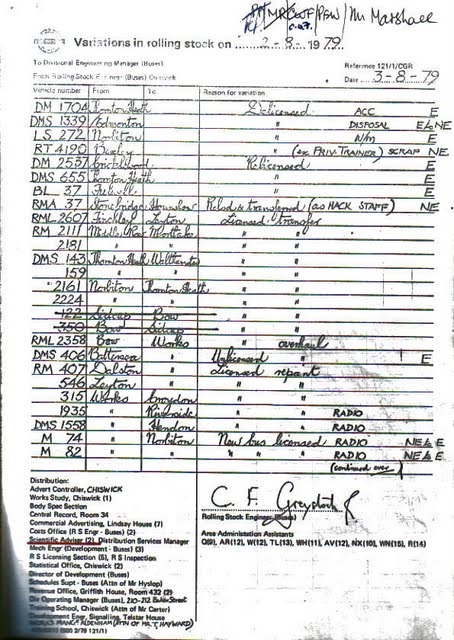 Mr Marshall
Variations in rolling stock on 2-8- 1979
To Divisional Engineering Manager (Buses)
Reference 121/1/CGR
From Rolling Stock Engineer (Buses) Chiswick
Date 3-8-79
Vehicle number From To Reason for variation
DM 1704 Thornton Heath Delicensed ACC E
DMS 1339 Edmonton " DISPOSAL E& NE
LS 272 Norbiton " N/m E
RT 4190 Bexley " (ex PRIV. TRAINER) SCRAP NE
DM 2537 Cricklewood Relicensed E
DMS 655 Thornton Heath " E
BL 37 " E
RMA 37 Stonebridge Hounslow Relcd & transferred (as HACK STAFF) NE
RML 2607 Finchley Leyton Licensed transfer
RM 2111 Middle Row Mortlake "
2181 " " "
DMS 143 Thornton Heath Walthamstow "
159 " " "
2161 Norbiton Thornton Heath "
2224 " " "
122 Sidcup Bow "
350 Bow Sidcup "
RML 2358 Bow Works " overhaul
DMS 406 Battersea " Unlicensed " E
RM 407 Dalston " Licensed repaint
546 Leyton " " "
315 Works Croydon " "
1935 " Riverside " " RADIO
DMS 1558 " Hendon " " RADIO
M 74 " Norbiton New bus licensed RADIO NE& E
M 82 " " " " " RADIO NE& E
(continued over)
Distribution:
Advert Controller, CHISWICK
Works Study, Chiswick (1)
Body Spec Section
Central Record, Room 34
Commercial Advertising, Lindsay House (7)
Costs Office (R S Engr - Buses) (2)
Scientific Adviser (2), Distribution Services Manager
Mech Engr (Development - Buses) (3)
R S Licensing Section (5), R S Inspection
Statistical Office, Chiswick (2)
Director of Development (Buses)
Schedules Supt - Buses (Attn of Mr Hyslop)
Revenue Office, Griffith House, Room 432 (2)
Div Operating Manager (Buses),
Training School, Chiswick (Attn of Mr Carter)
Development Engr, Signalling, Telstar House
WORKS MANGR ALDENHAM (ATTN OF MR. T. HAYWARD)
C. F.
Rolling Stock Engineer (Buses)
Area Administration Assistants
Q(9), AR(12), W(12), TL(13), WH(11), AV(12), NX(10), WN(15), R(14)